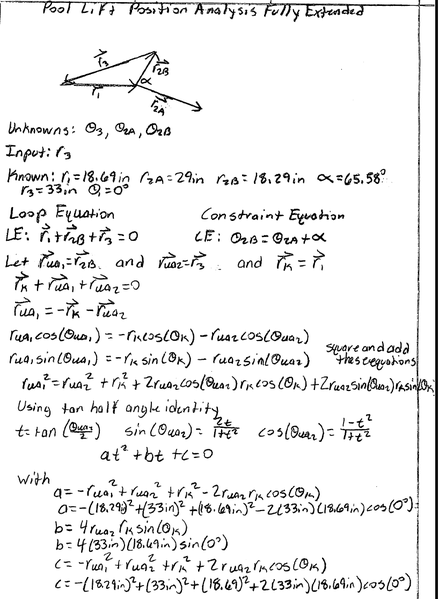 Pool Lift Position Analysis Fully Extended
r⃗3
r⃗2B
α
r⃗1
r⃗2A
Unknowns: Θ3, Θ2A, Θ2B
Input: r3
Known: r1=18.69in r2A=29in r2B=18.29in α=65.58°
r3=33in Θ=0°
Loop Equation Constraint Equation
LE: r⃗1+r⃗2B+r⃗3=0 CE: Θ2B=Θ2A+α
Let r⃗ua1=r⃗2B and r⃗ua2=r⃗3 and r⃗k=r⃗1
r⃗k+r⃗ua1+r⃗ua2=0
r⃗ua1=-r⃗k-r⃗ua2
rua1cos(Θua1)=-rkcos(Θk)-rua2cos(Θua2)
rua1sin(Θua1)=-rksin(Θk)-rua2sin(Θua2)
square and add
these equations
rua1²=rua2²+rk²+2rua2cos(Θua2)rkcos(Θk)+2rua2sin(Θua2)rksin(Θk)
Using tan half angle identity
t=tan(Θua2/2) sin(Θua2)=2t/1+t² cos(Θua2)=1-t²/1+t²
at²+bt+c=0
with
a=-rua1²+rua2²+rk²-2rua2rkcos(Θk)
a=-(18.29in)²+(33in)²+(18.69in)²-2(33in)(18.69in)cos(0°)
b=4rua2rksin(Θk)
b=4(33in)(18.69in)sin(0°)
c=-rua1²+rua2²+rk²+2rua2rkcos(Θk)
c=-(18.29in)²+(33in)²+(18.69)²+2(33in)(18.69in)cos(0°)